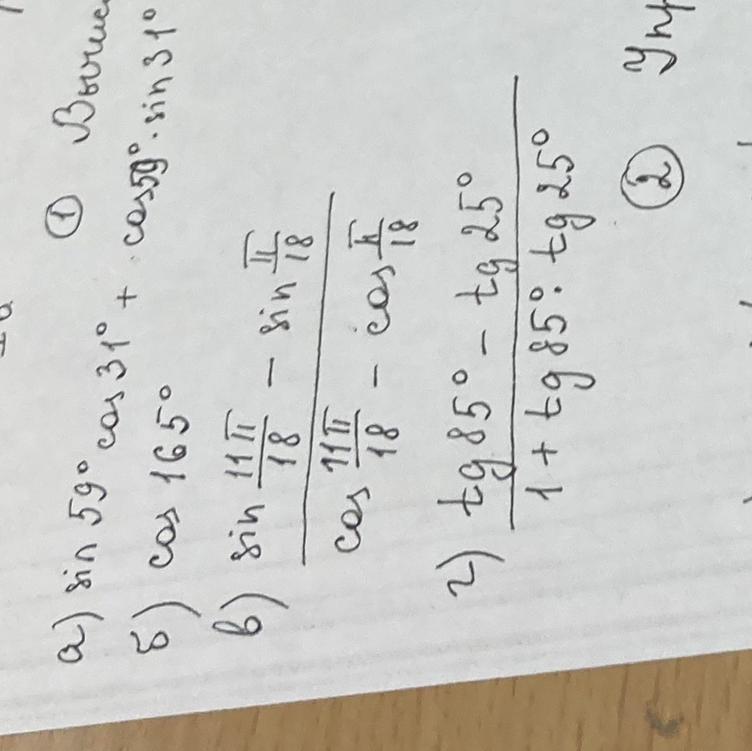 ① Вычис
а) sin 59° cos 31° + cos 59° · sin 31°
б) cos 165°
в) sin 11π/18 − sin π/18
cos 11π/18 − cos π/18
г) tg 85° − tg 25°
1 + tg 85° · tg 25°
② Упр